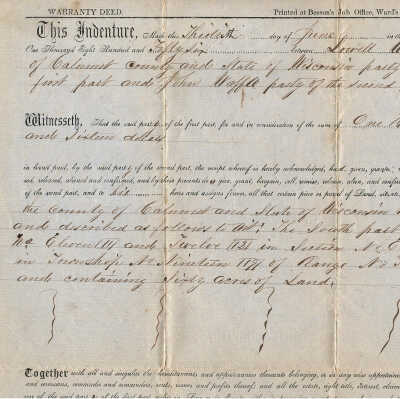 WARRANTY DEED. Printed at Besson's Job Office, Ward's
This Indenture, Made this Thirtieth day of June in
One Thousand Eight Hundred and fifty six between Lowell
of Calumet County and State of Wisconsin party
first part and John Waffle party of the second
Witnesseth, That the said party of the first part, for and in consideration of the sum of One
and Sixteen dollars
in hand paid, by the said party of the second part, the receipt whereof is hereby acknowledged, hath given, granted,
sold, released, aliened and confirmed, and by these presents do give, grant, bargain, sell, remise, release, alien, and confirm
of the second part, and to his heirs and assigns forever, all that certain piece or parcel of Land, situate
the County of Calumet and State of Wisconsin
and described as follows to wit: The South part
No Eleven (11) and Twelve (12) in Section No
in Township No Nineteen (19) of Range No
and containing Sixty acres of Land
Together with all and singular the hereditaments and appurtenances thereunto belonging, or in any wise appertaining
and reversions, remainder and remainders, rents, issues and profits thereof; and all the estate, right, title, interest, claim
of the said part of the first part